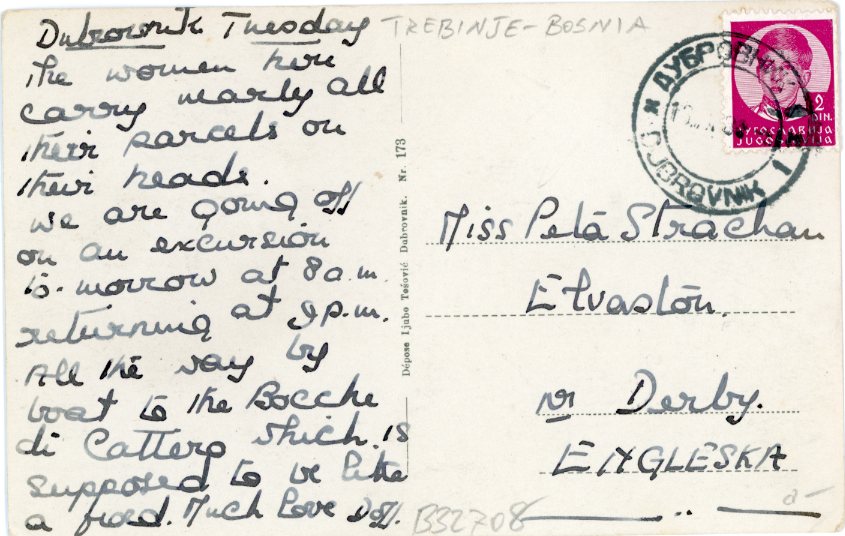 Dubrovnik Tuesday
The women here
carry nearly all
their parcels on
their heads.
We are going off
on an excursion
to-morrow at 8 a.m.
returning at 9 p.m.
All the way by
boat to the Bocche
di Cattero which is
supposed to be like
a fiord. Much Love
TREBINJE - BOSNIA
Dépose Ljubo Tošović Dubrovnik. Nr. 173
ДУБРОВНИК
DUBROVNIK 1
2
DIN.
ЈУГОСЛАВИЈА
JUGOSLAVIJA
Miss Peta Strachan
Elvaston.
nr Derby.
ENGLESKA
B32708